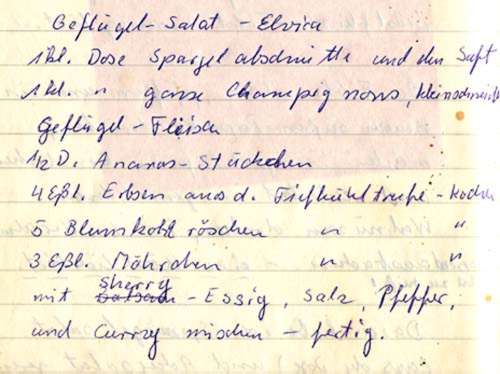 Geflügel-Salat - Elvira
1 kl. Dose Spargelabschnitte und den Saft
1 kl. " ganze Champignons, kleinschneid
Geflügel-Fleisch
1/2 D. Ananas-Stückchen
4 Eßl. Erbsen aus d. Tiefkühltruhe - kochen
5 Blumkohlröschen " "
3 Eßl. Möhrchen " "
sherry
mit Balsam - Essig, Salz, Pfeffer,
und Curry mischen - fertig.